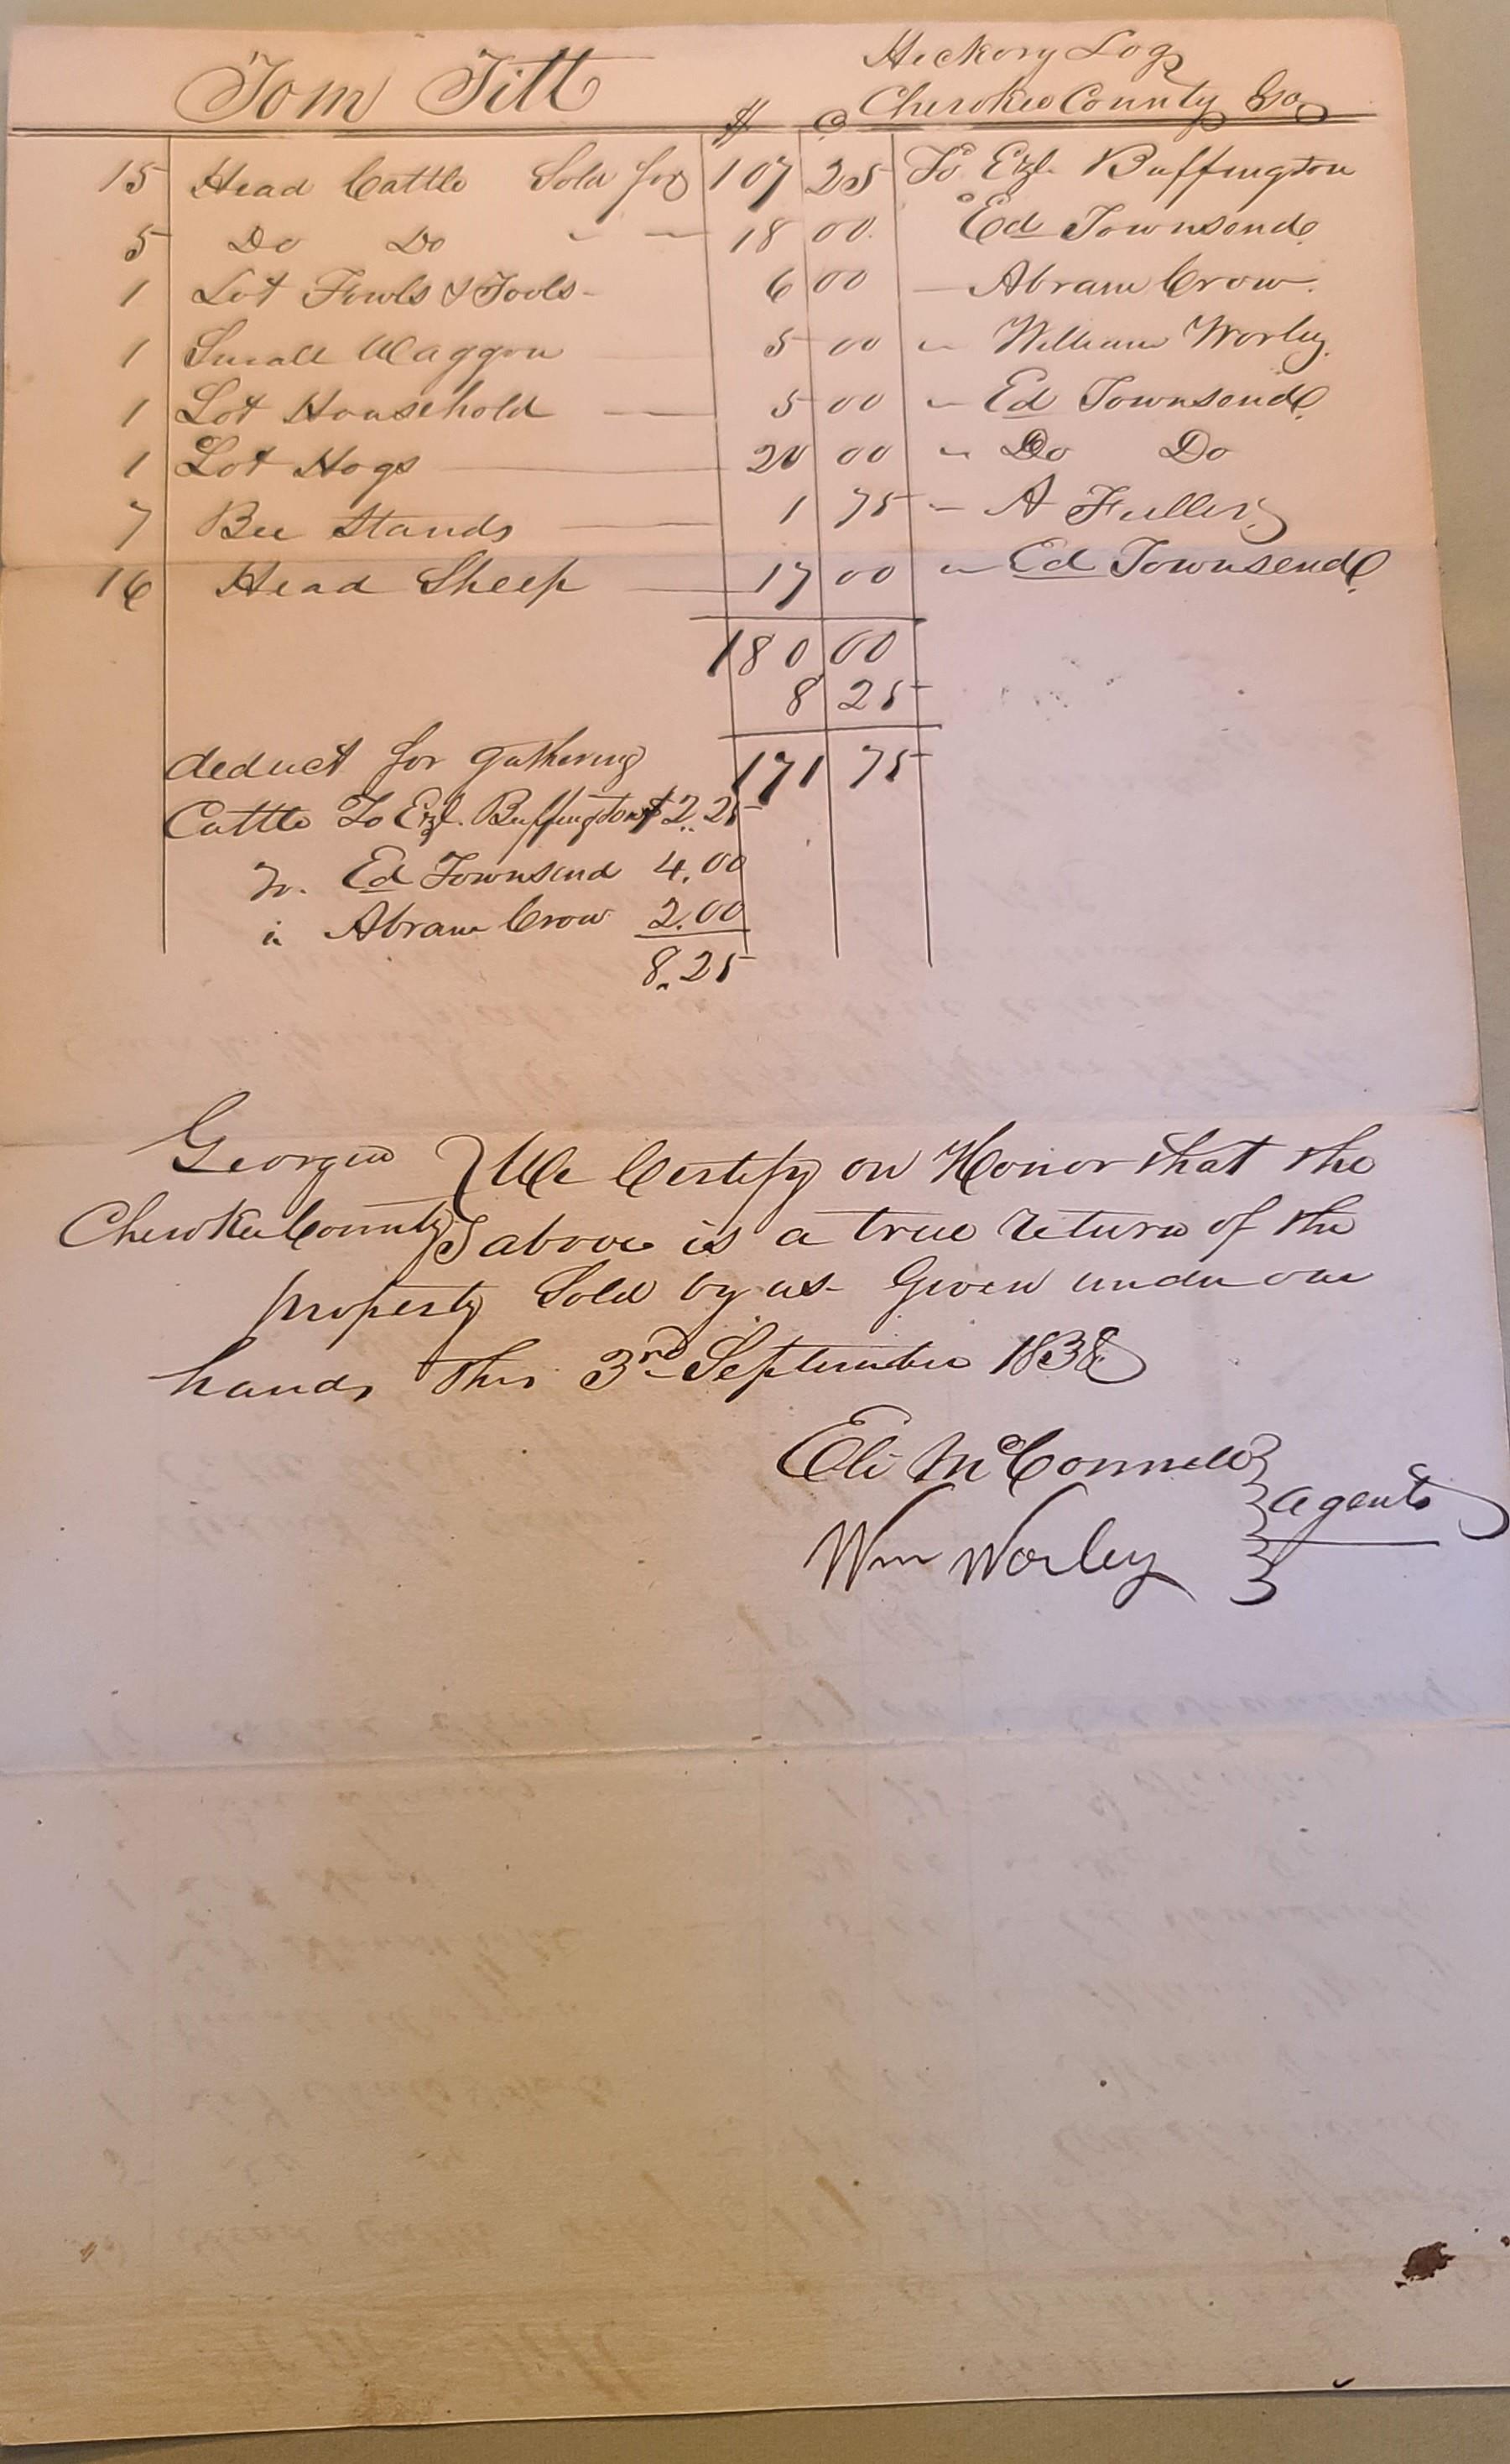 Tom Titt
Hickory Log
$ C Cherokee County Ga
15 Head Cattle Sold for 107 25 To Ezl. Buffington
5 Do Do " " 18 00 " Ed Townsend
1 Lot Fowls & Tools - 6 00 — Abram Crow.
1 Small Waggon 5 00 " William Worley.
1 Lot Household — 5 00 " Ed Townsend
1 Lot Hogs — 20 00 " Do Do
7 Bee Stands — 1 75 " A Fuller
16 Head Sheep — 17 00 " Ed Townsend
180 00
8 25
deduct for gathering 171 75
Cattle To Ezl. Buffington $2.25
Ed Townsend 4.00
" Abram Crow 2.00
8.25
Georgia } We Certify on Honor that the
Cherokee County } above is a true return of the
property Sold by us - Given under our
hands this 3rd September 1838
Eli McConnell }
} agents
Wm Worley }